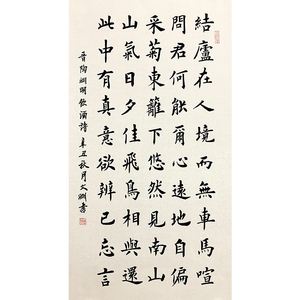 結廬在人境而無車馬喧
問君何能爾心遠地自偏
采菊東籬下悠然見南山
山氣日夕佳飛鳥相與還
此中有真意欲辨已忘言
晉陶淵明飲酒詩 辛丑秋月文淵書